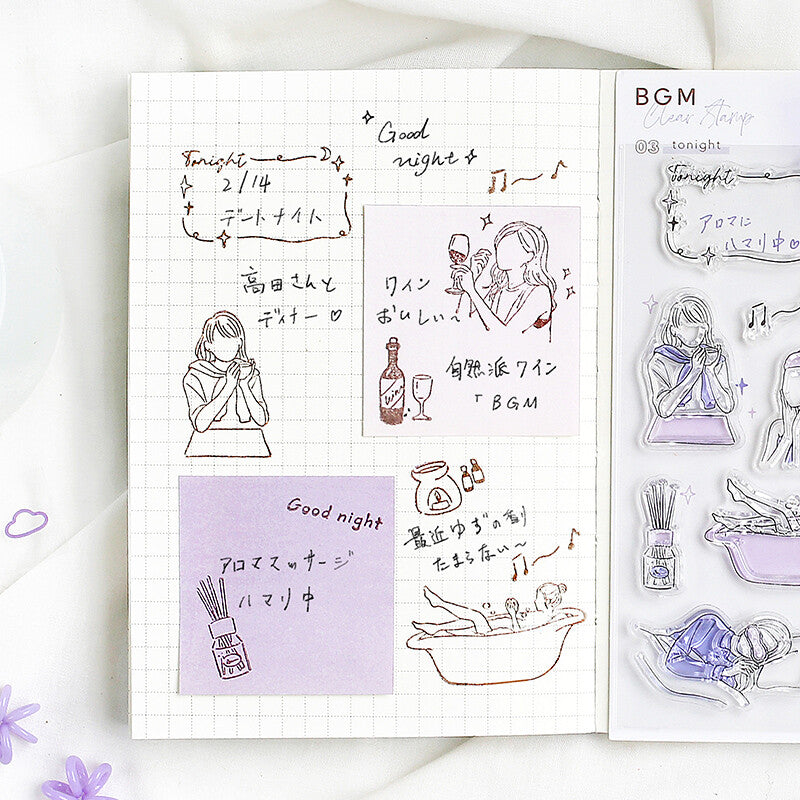 Good
night
Tonight
2/14
デートナイト
高田さんと
ディナー♡
ワイン
おいしい〜
自然派ワイン
「BGM
wine
Good night
アロママッサージ
ハマり中
最近ゆずの香り
たまらない〜
BGM
Clear Stamp
03 tonight
Tonight
アロマに
ハマり中♡